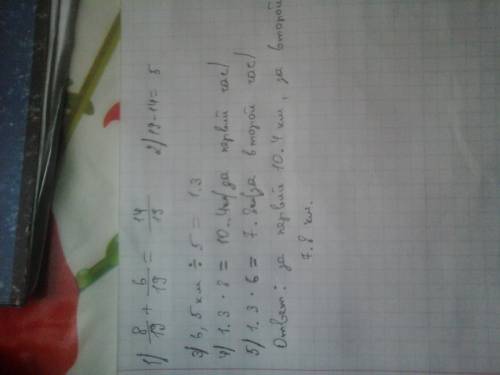 1) 8/19 + 6/19 = 14/19 2) 19-14= 5
3) 6,5 км ÷ 5 = 1.3
4) 1.3 · 8 = 10.4км/за первый час/
5) 1.3 · 6 = 7.8км/за второй час/
Ответ: за первый 10.4 км, за второй
7.8 км.